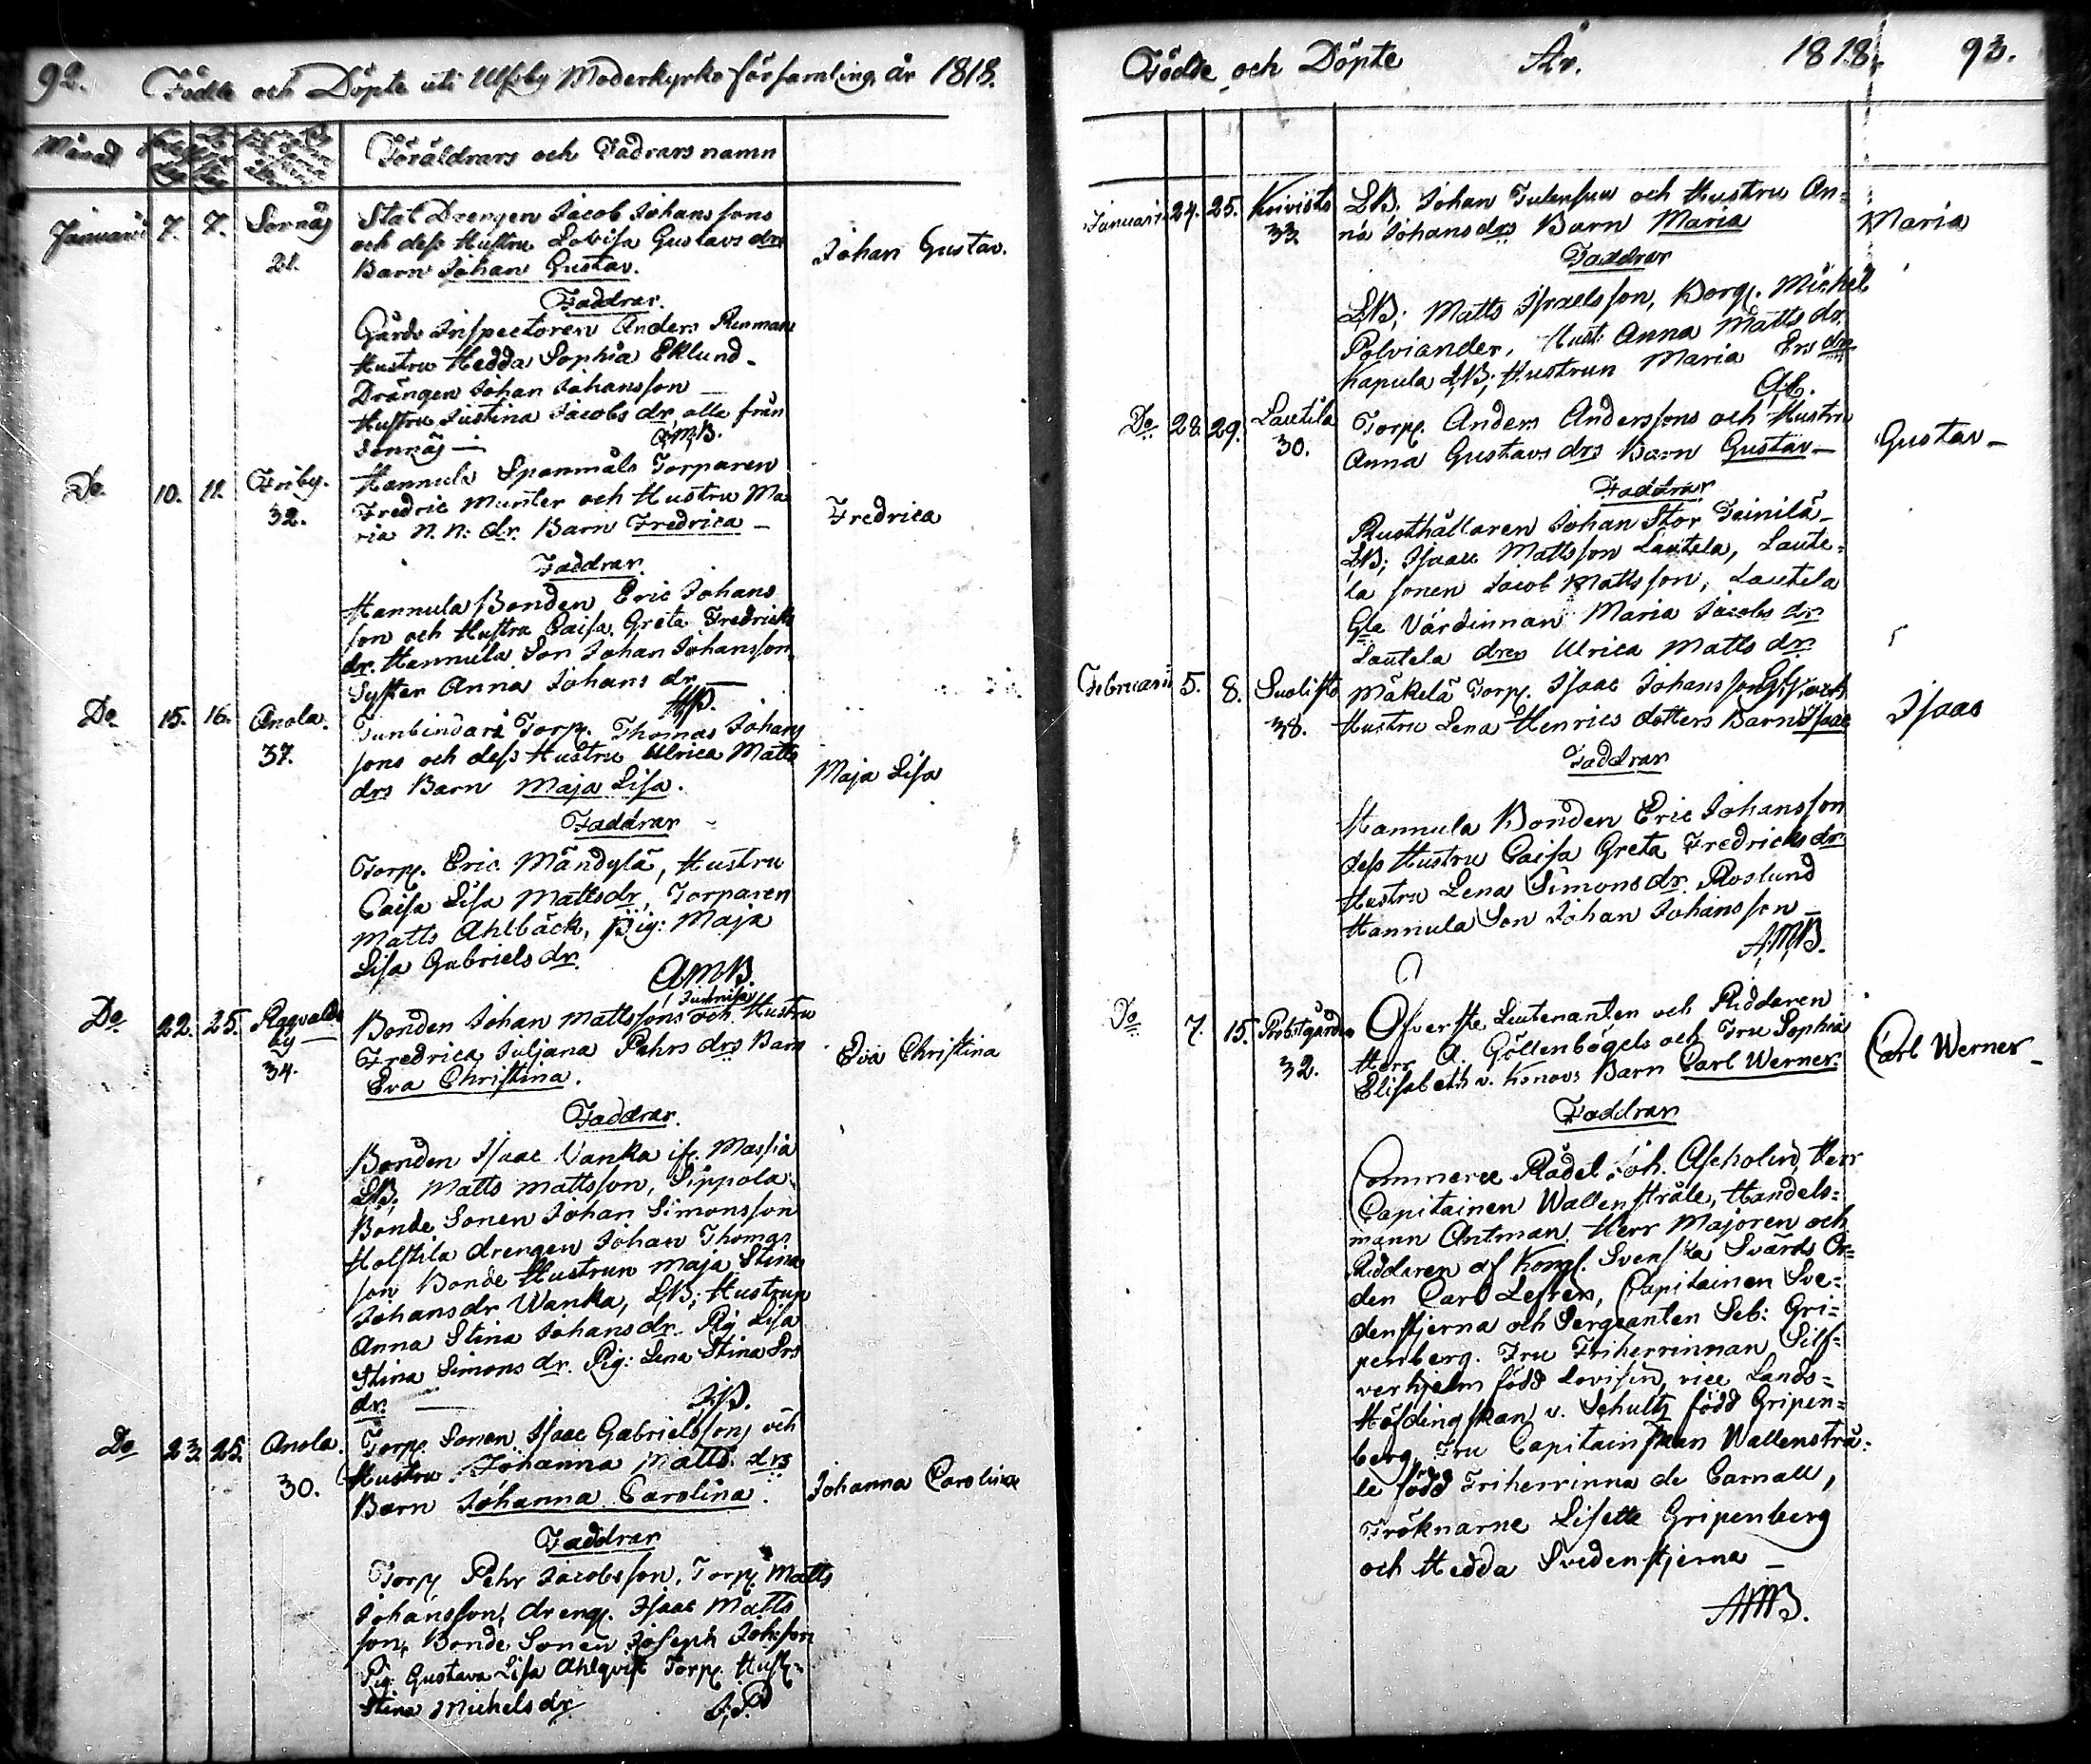 92. Födde och Döpte uti Ulfsby Moderkyrko församling, år 1818.
Månad
Föräldrars och Fadrars namn
Januarii 7. 7. Sornäs
21.
Stal Drengen Jacob Johanssons
och dess Hustru Lovisa Gustavs drs
Barn Johan Gustav.
Johan Gustav.
Faddrar.
Gårds Inspectoren Anders Renman
Hustru Hedda Sophia Eklund -
Drängen Johan Johansson -
Hustru Justina Jacobs dr, alla från
Sonnäs — A.M.B.
Do 10. 11. Friby.
32.
Hannula Spanmåls Torparen
Fredric Munter och Hustru Ma
ria N. N: dr. Barn Fredrica -
Fredrica
Faddrar.
Hannula Bonden Eric Johans
son och Hustru Caisa Greta Fredrichs
dr. Hannula Son Johan Johansson,
Syster Anna Johans dr -
Do 15. 16. Anola.
37.
Tunbindare Torp. Thomas Johans
sons och dess Hustru Ulrica Matts
drs Barn Maja Lisa.
Maja Lisa
Faddrar
Torp. Eric Mändylä, Hustru
Caisa Lisa Mattsdr, Torparen
Matts Ahlbäck, Pig: Maja
Lisa Gabriels dr.
A.M.B.
Do 22. 25. Ragvalds
by
34.
Bonden Johan Mattssons och Hustru
Fredrica Juljana Pehrs drs Barn
Eva Christina.
Eva Christina
Faddrar.
Bonden Isaac Vanka if. Massia
LB; Matts Mattsson, Sippola
Bonde Sonen Johan Simonsson
Holstila drengen Johan Thomas
son Bonde Hustrun Maja Stina
Johansdr Wanka, LB; Hustrun
Anna Stina Johansdr. Pig Lisa
Stina Simons dr. Pig: Lena Stina Ers
dr. —
Do 23. 25. Anola.
30.
Torp. Sonen Isaac Gabrielssons och
Hustru Johanna Matts. drs
Barn Johanna Carolina.
Johanna Carolina
Faddrar
Torp Pehr Jacobsson, Torp. Matts
Johansson, dreng. Isaac Matts
son, Bonde Sonen Joseph Johsson
Pig Gustava Lisa Ahlqvist Torp. Hust.
Stina Michelsdr
Födde och Döpte År. 1818. 93.
Januarii 24. 25. Knivisto
33.
LB. Johan Tulensuu och Hustru An=
na Johans drs Barn Maria
Maria
Faddrar
LB; Matts Israelsson, Borg. Michel
Polviander, Hust. Anna Matts dr.
Kapula LB; Hustrun Maria Ers dr.
Do 28. 29. Lautila
30.
Torp. Anders Anderssons och Hustru
Anna Gustavs drs Barn Gustav -
Gustav -
Faddrar
Rusthållaren Johan Stor Teinilä -
LB; Isaac Mattsson Lautela, Laute=
la sonen Jacob Mattsson, Lautela
Gla Värdinnan Maria Jacobs dr
Lautela dren Ulrica Matts dr.
Februarii 5. 8. Suolisto
38.
Mäkelä Torp. Isaac Johanssons och
Hustru Lena Henrics dotters Barn Isaac
Isaac
Faddrar
Hannula Bonden Eric Johansson
dess Hustru Caisa Greta Fredrichs dr
Hustru Lena Simonsdr. Roslund
Hannula Son Johan Johansson -
A.M.B.
Do 7. 15. Prostgården
32.
Öfverste Leutenanten och Riddaren
Herr A. Göllenbögels och Fru Sophia
Elisabeth v. Konovs Barn Carl Werner.
Carl Werner -
Faddrar
Commerce Rådet Joh. Ascholin, Herr
Capitainen Wallenstråle, Handels=
mann Antman, Herr Majoren och
Riddaren af Kongl. Svenska Svärds Or=
den Carl Lefren, Capitainen Sve=
denstjerna och Sergeanten Seb: Gri=
penberg. Fru Friherrinnan Silf=
verhjelm född Lovisin, vice Lands=
Höfdingskan v. Schultz född Gripen=
berg, Fru Capitainskan Wallenströ=
le född Friherrinna de Carnall,
Fröknarne Lisette Gripenberg
och Hedda Svedenstjerna -
AMB.